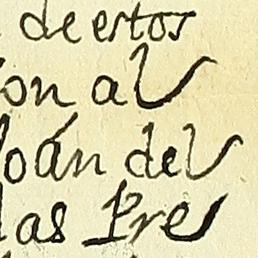 de estos
ón al
oán del
las Pre